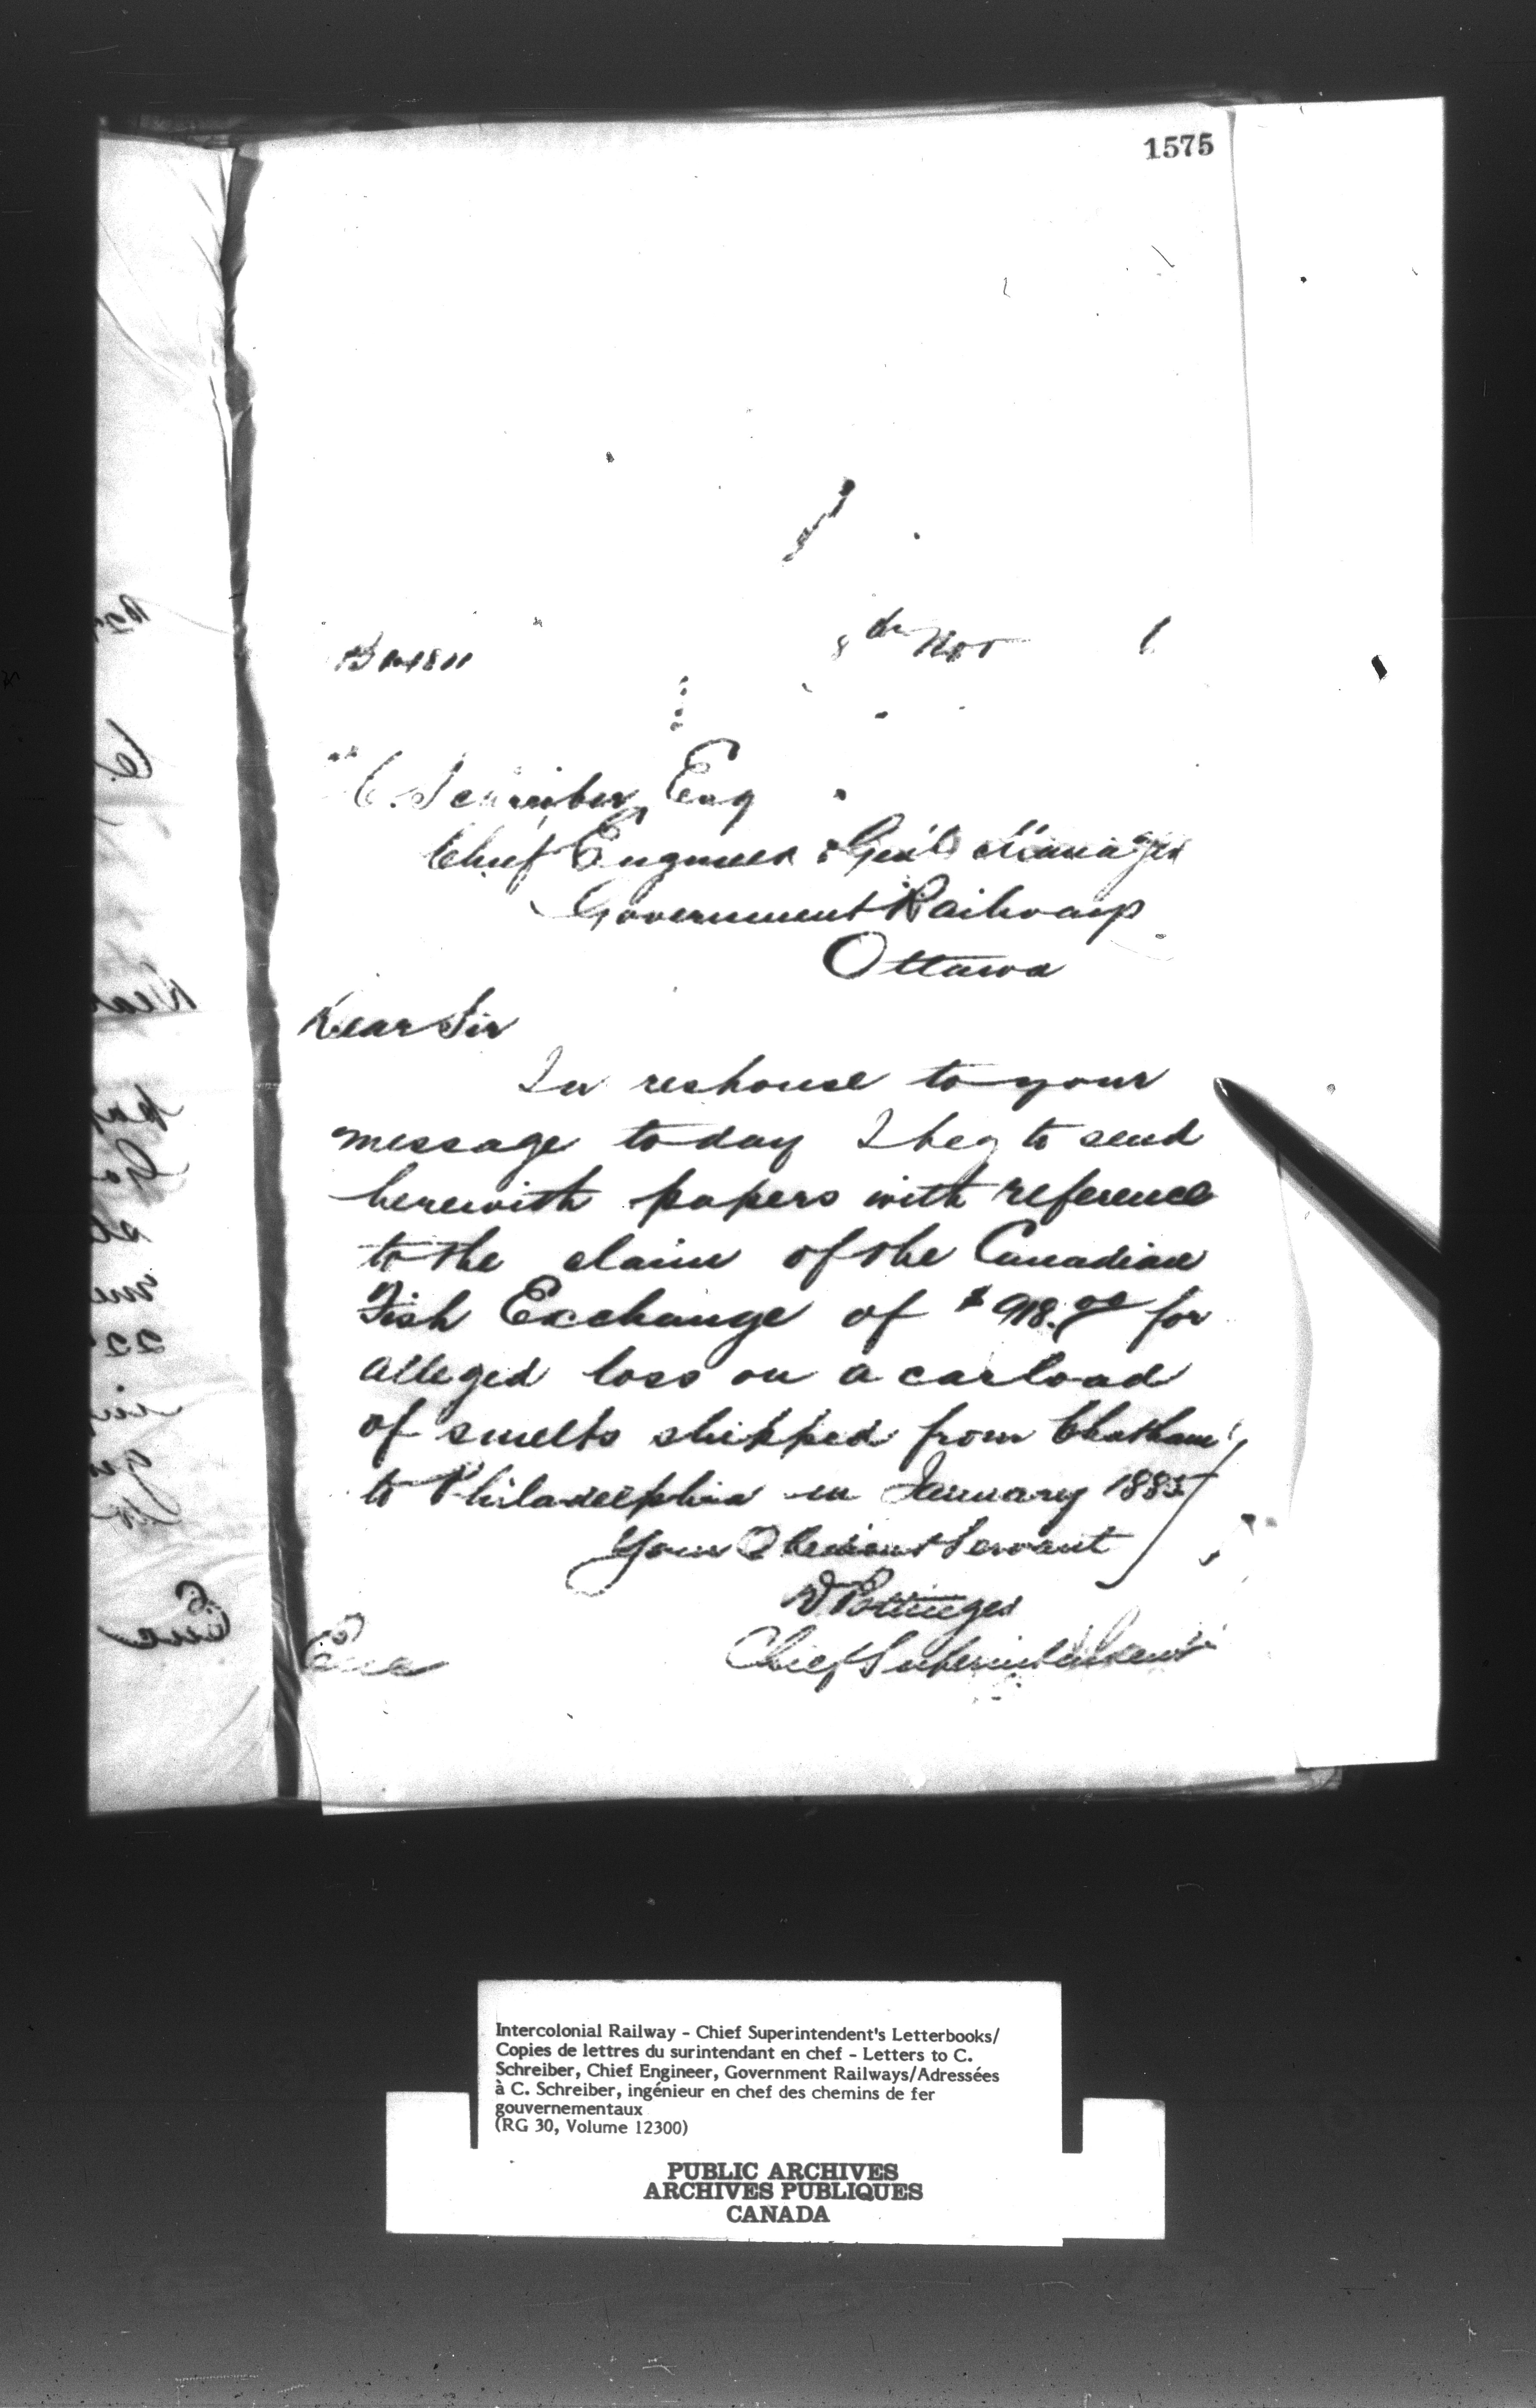 1575
8th Nov
C. Schreiber Esq
Chief Engineer & Gen'l Manager
Government Railways
Ottawa
Dear Sir
In response to your
message today I beg to send
herewith papers with reference
to the claim of the Canadian
Fish Exchange of $918.90 for
alleged loss on a carload
of smelts shipped from Chatham
to Philadelphia in January 1885
Your Obedient Servant
D Pottinger
Chief Superintendent
Enc
Intercolonial Railway - Chief Superintendent's Letterbooks/
Copies de lettres du surintendant en chef - Letters to C.
Schreiber, Chief Engineer, Government Railways/Adressées
à C. Schreiber, ingénieur en chef des chemins de fer
gouvernementaux
(RG 30, Volume 12300)
PUBLIC ARCHIVES
ARCHIVES PUBLIQUES
CANADA